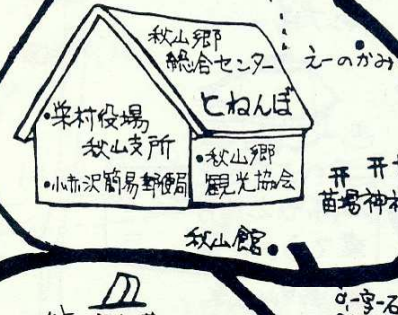 秋山郷
総合センター
とねんぼ
えーのかみ
・栄村役場
秋山支所
・小赤沢簡易郵便局
・秋山郷
観光協会
苗場神社
秋山館